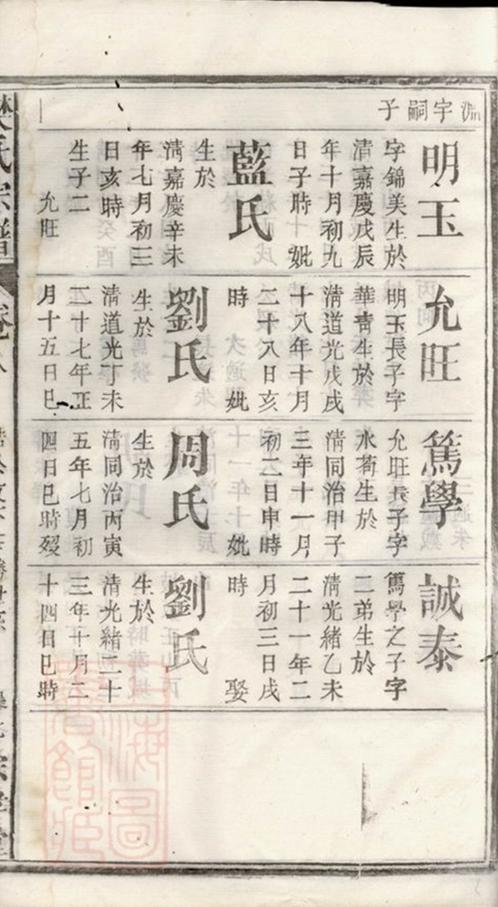 字嗣子
明玉
字錦美生於
清嘉慶戊辰
年十月初九
日子時 妣
藍氏
生於
清嘉慶辛未
年七月初三
日亥時
生子二
允旺
允旺
明玉長子字
華青生於
清道光戊戌
十八年十月
二十八日亥
時 妣
劉氏
生於
清道光丁未
二十七年正
月十五日巳
篤學
允旺長子字
水生於
清同治甲子
三年十一月
初二日申時
妣
周氏
生於
清同治丙寅
五年七月初
四日巳時歿
誠泰
篤學之子字
二弟生於
清光緒乙未
二十一年二
月初三日戌
時 娶
劉氏
生於
清光緒二十
三年十月二
十四日巳時
氏宗譜